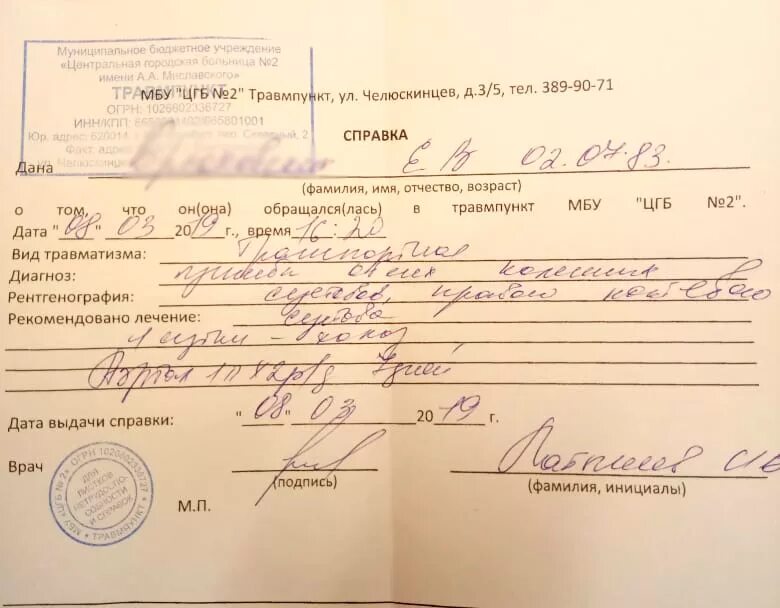 Муниципальное бюджетное учреждение
«Центральная городская больница №2
имени А.А. Миславского»
ТРАВМПУНКТ
ОГРН: 1026602336727
ИНН/КПП:
Юр. адрес: 620014, г. пер. Северный, 2
Факт. адрес
ул. Челюскинцев
МБУ "ЦГБ №2" Травмпункт, ул. Челюскинцев, д.3/5, тел. 389-90-71
СПРАВКА
Дана Е В 02.07.83.
(фамилия, имя, отчество, возраст)
о том, что он(она) обращался(лась) в травмпункт МБУ "ЦГБ №2".
Дата "08" 03 2019 г., время 16:20
Вид травматизма: Транспортная
Диагноз: ушибы обеих коленных
Рентгенография: суставов, правого локтевого
Рекомендовано лечение: сустава
1 сутки - холод
1т х 2р/д 7 дней
Дата выдачи справки: "08" 03 2019 г.
Врач
(подпись)
(фамилия, инициалы)
М.П.
МБУ «ЦГБ № 2» ОГРН 1026602336727
* ТРАВМПУНКТ *
ДЛЯ
ЛИСТКОВ
НЕТРУДОСПО-
СОБНОСТИ
И СПРАВОК